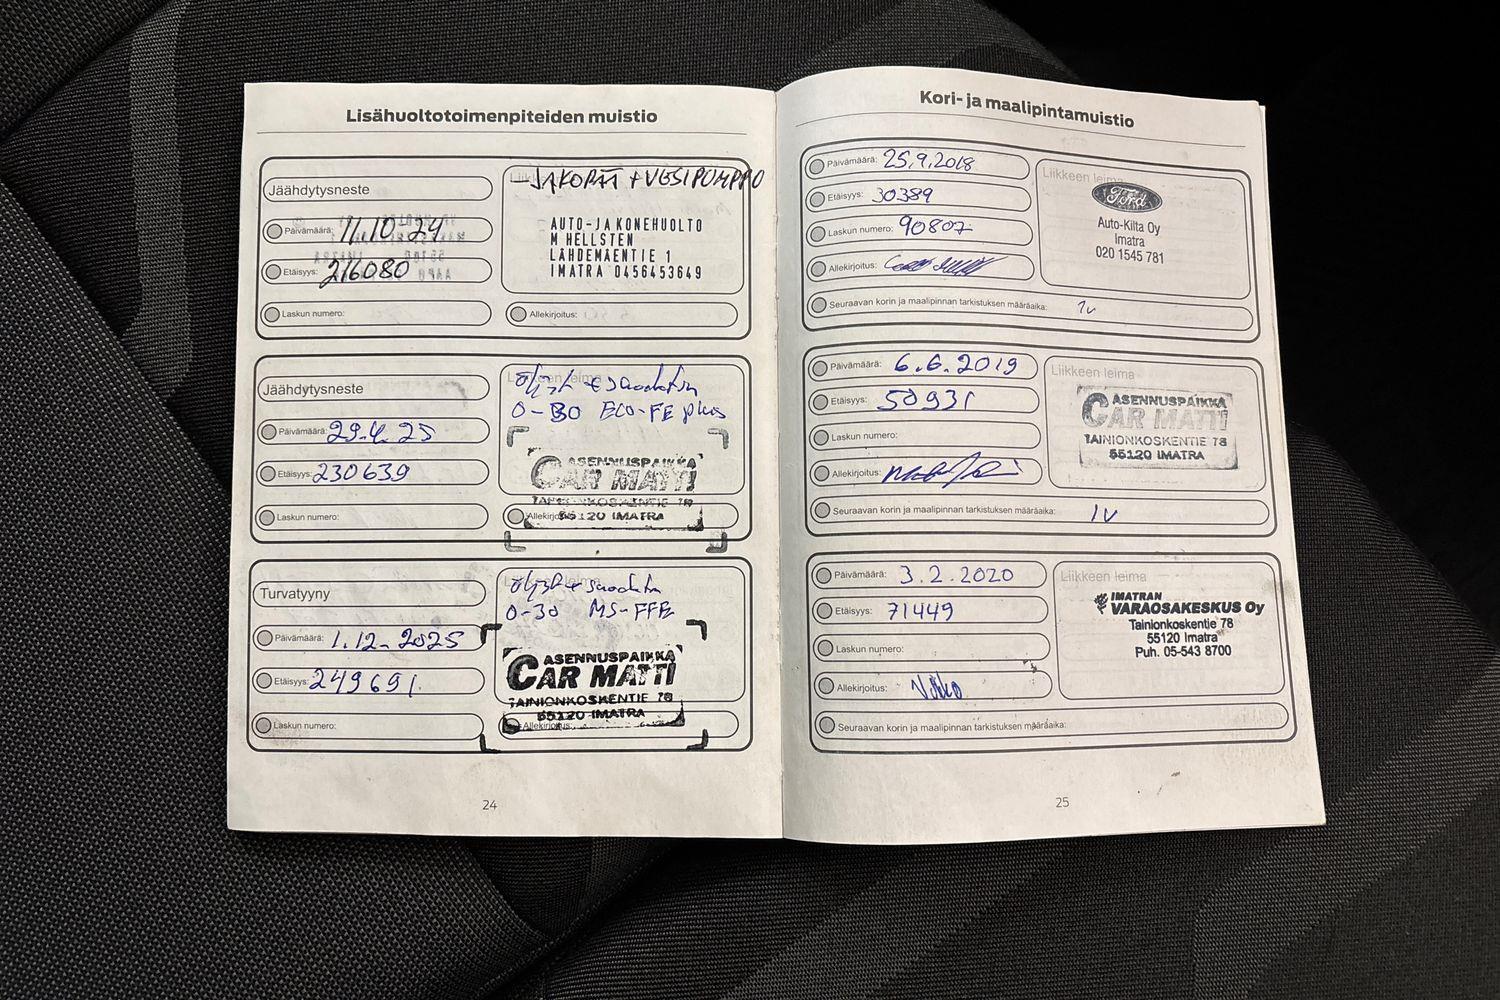 Lisähuoltotoimenpiteiden muistio
Jäähdytysneste
Liikkeen leima
JAKOPÄÄ + VESIPUMPPU
Päivämäärä: 11.10.24
Etäisyys: 216080
AUTO-JA KONEHUOLTO
M HELLSTEN
LÄHDEMÄENTIE 1
IMATRA 0456453649
Laskun numero:
Allekirjoitus:
Jäähdytysneste
Liikkeen leima
öljyt + suodatin
0-30 ECO-FE plus
Päivämäärä: 29.4.25
Etäisyys: 230639
ASENNUSPAIKKA
CAR MATTI
TAINIONKOSKENTIE 78
55120 IMATRA
Laskun numero:
Allekirjoitus:
Turvatyyny
Liikkeen leima
öljyt + suodatin
0-30 MS-FFE
Päivämäärä: 1.12.2025
Etäisyys: 249691
ASENNUSPAIKKA
CAR MATTI
TAINIONKOSKENTIE 78
55120 IMATRA
Laskun numero:
Allekirjoitus:
24
Kori- ja maalipintamuistio
Päivämäärä: 25.9.2018
Etäisyys: 30389
Laskun numero: 90807
Allekirjoitus:
Seuraavan korin ja maalipinnan tarkistuksen määräaika: 1v
Liikkeen leima
Ford
Auto-Kilta Oy
Imatra
020 1545 781
Päivämäärä: 6.6.2019
Etäisyys: 50931
Laskun numero:
Allekirjoitus:
Seuraavan korin ja maalipinnan tarkistuksen määräaika: 1v
Liikkeen leima
ASENNUSPAIKKA
CAR MATTI
TAINIONKOSKENTIE 78
55120 IMATRA
Päivämäärä: 3.2.2020
Etäisyys: 71449
Laskun numero:
Allekirjoitus:
Seuraavan korin ja maalipinnan tarkistuksen määräaika:
Liikkeen leima
IMATRAN
VARAOSAKESKUS Oy
Tainionkoskentie 78
55120 Imatra
Puh. 05-543 8700
25